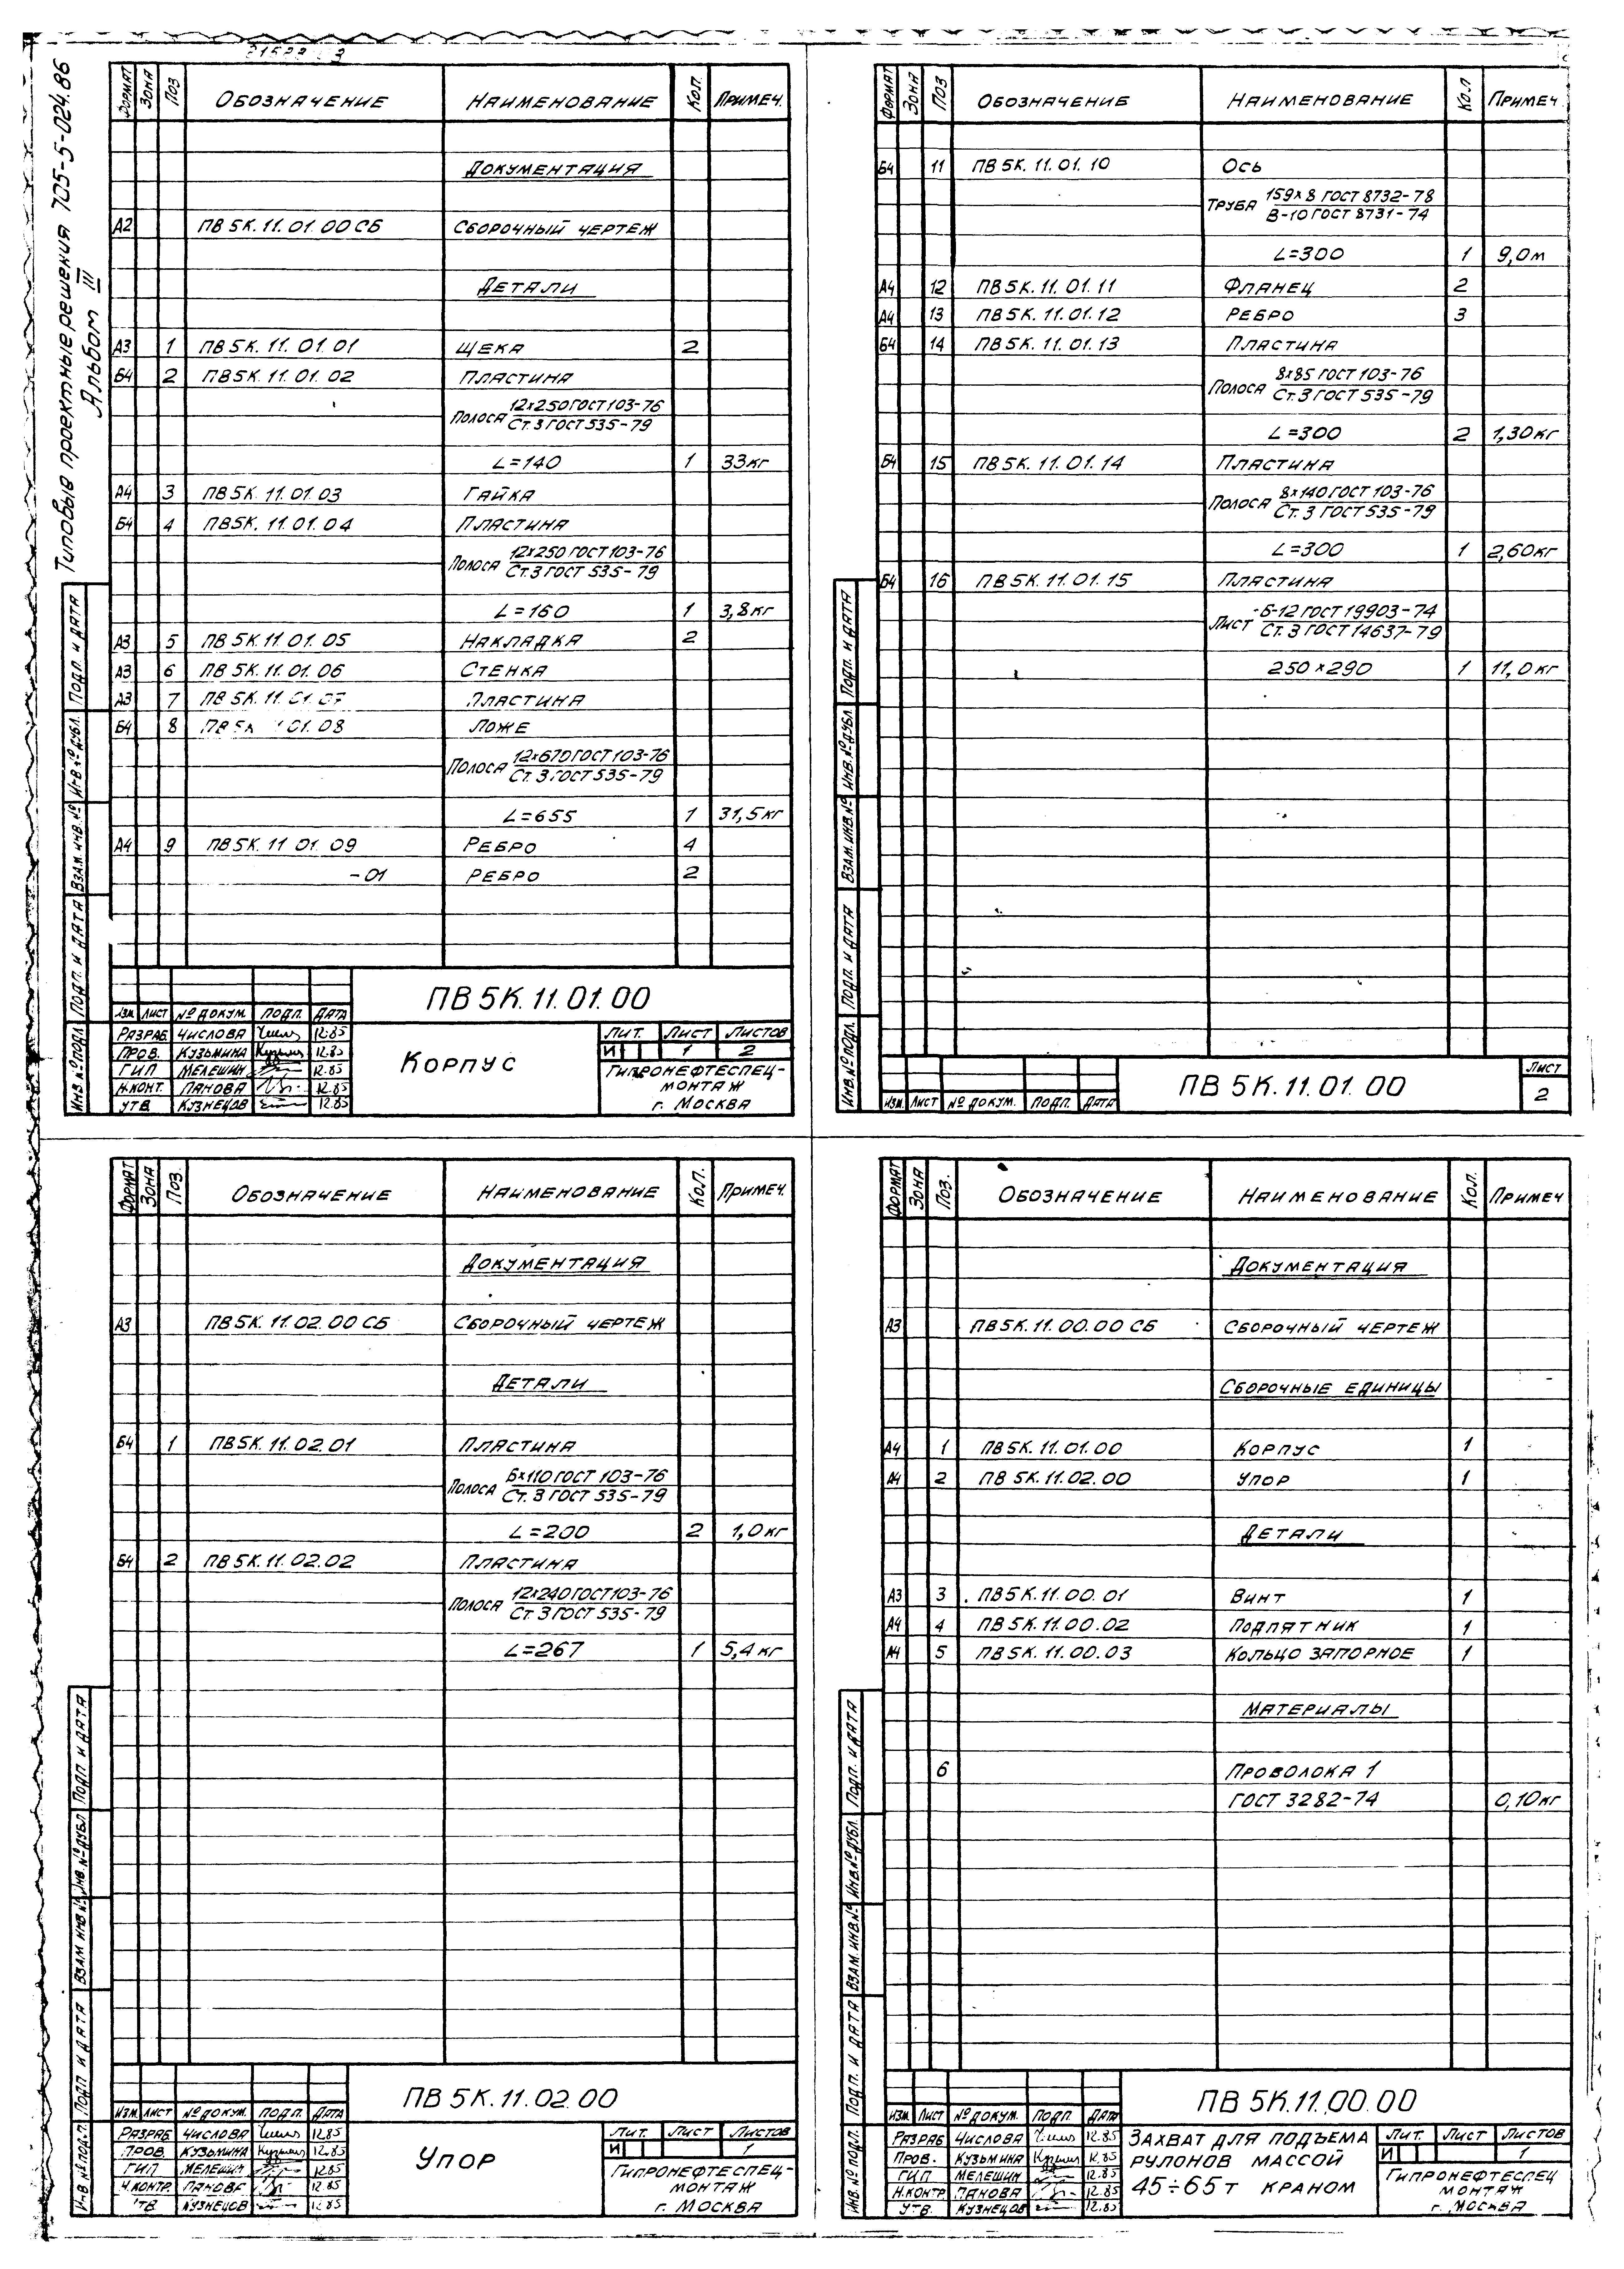 Типовые проектные решения 705-5-024.86
Альбом III
Формат Зона Поз Обозначение Наименование Кол. Примеч.
Документация
А2 ПВ 5К. 11. 01. 00 СБ Сборочный чертеж
Детали
А3 1 ПВ 5К. 11. 01. 01 Щека 2
Б4 2 ПВ 5К. 11. 01. 02 Пластина
Полоса 12х250 ГОСТ 103-76
Ст. 3 ГОСТ 535-79
L=140 1 33кг
А4 3 ПВ 5К. 11. 01. 03 Гайка
Б4 4 ПВ 5К. 11. 01. 04 Пластина
Полоса 12х250 ГОСТ 103-76
Ст. 3 ГОСТ 535-79
L=160 1 3,8кг
А3 5 ПВ 5К. 11. 01. 05 Накладка 2
А3 6 ПВ 5К. 11. 01. 06 Стенка
А3 7 ПВ 5К. 11. 01. 07 Пластина
Б4 8 ПВ 5К. 01. 08 Ложе
Полоса 12х670 ГОСТ 103-76
Ст. 3 ГОСТ 535-79
L=655 1 31,5кг
А4 9 ПВ 5К. 11 01. 09 Ребро 4
-01 Ребро 2
ПВ 5К. 11. 01. 00
Изм. Лист № докум. Подп. Дата
Разраб. Числова 12.85
Пров. Кузьмина 12.85
ГИП Мелешин 12.85
Н.конт. Панова 12.85
Утв. Кузнецов 12.85
Корпус
Лит. Лист Листов
И 1 2
Гипронефтеспец-
монтаж
г. Москва
Инв. № подл. Подп. и дата Взам. инв. № Инв. № дубл. Подп. и дата
Формат Зона Поз Обозначение Наименование Кол Примеч
Б4 11 ПВ 5К. 11. 01. 10 Ось
Труба 159х8 ГОСТ 8732-78
В-10 ГОСТ 8731-74
L=300 1 9,0м
А4 12 ПВ 5К. 11. 01. 11 Фланец 2
А4 13 ПВ 5К. 11. 01. 12 Ребро 3
Б4 14 ПВ 5К. 11. 01. 13 Пластина
Полоса 8х85 ГОСТ 103-76
Ст. 3 ГОСТ 535-79
L=300 2 1,30кг
Б4 15 ПВ 5К. 11. 01. 14 Пластина
Полоса 8х140 ГОСТ 103-76
Ст. 3 ГОСТ 535-79
L=300 1 2,60кг
Б4 16 ПВ 5К. 11. 01. 15 Пластина
Лист -Б-12 ГОСТ 19903-74
Ст. 3 ГОСТ 14637-79
250х290 1 11,0кг
ПВ 5К. 11. 01. 00
Изм. Лист № докум. Подп. Дата
Лист
2
Инв. № подл. Подп. и дата Взам. инв. № Инв. № дубл. Подп. и дата
Формат Зона Поз. Обозначение Наименование Кол. Примеч.
Документация
А3 ПВ 5К. 11. 02. 00 СБ Сборочный чертеж
Детали
Б4 1 ПВ 5К. 11. 02. 01 Пластина
Полоса 6х110 ГОСТ 103-76
Ст. 3 ГОСТ 535-79
L=200 2 1,0кг
Б4 2 ПВ 5К. 11. 02. 02 Пластина
Полоса 12х240 ГОСТ 103-76
Ст. 3 ГОСТ 535-79
L=267 1 5,4кг
ПВ 5К. 11. 02. 00
Изм. Лист № докум. Подп. Дата
Разраб Числова 12.85
Пров. Кузьмина 12.85
ГИП Мелешин 12.85
Н.контр. Панова 12.85
Утв. Кузнецов 12.85
Упор
Лит. Лист Листов
И 1
Гипронефтеспец-
монтаж
г. Москва
Инв № подл. Подп и дата Взам инв № Инв. № дубл Подп и дата
Формат Зона Поз. Обозначение Наименование Кол. Примеч
Документация
А3 ПВ 5К. 11. 00. 00 СБ Сборочный чертеж
Сборочные единицы
А4 1 ПВ 5К. 11. 01. 00 Корпус 1
А4 2 ПВ 5К. 11. 02. 00 Упор 1
Детали
А3 3 ПВ 5К. 11. 00. 01 Винт 1
А4 4 ПВ 5К. 11. 00. 02 Подпятник 1
А4 5 ПВ 5К. 11. 00. 03 Кольцо запорное 1
Материалы
6 Проволока 1
ГОСТ 3282-74 0,10кг
ПВ 5К. 11. 00. 00
Изм. Лист № докум. Подп. Дата
Разраб Числова 12.85
Пров. Кузьмина 12.85
ГИП Мелешин 12.85
Н.контр Панова 12.85
Утв. Кузнецов 12.85
Захват для подъема
рулонов массой
45÷65т краном
Лит. Лист Листов
И 1
Гипронефтеспец
монтаж
г. Москва
Инв. № подл. Подп. и дата Взам. инв. № Инв. № дубл. Подп. и дата